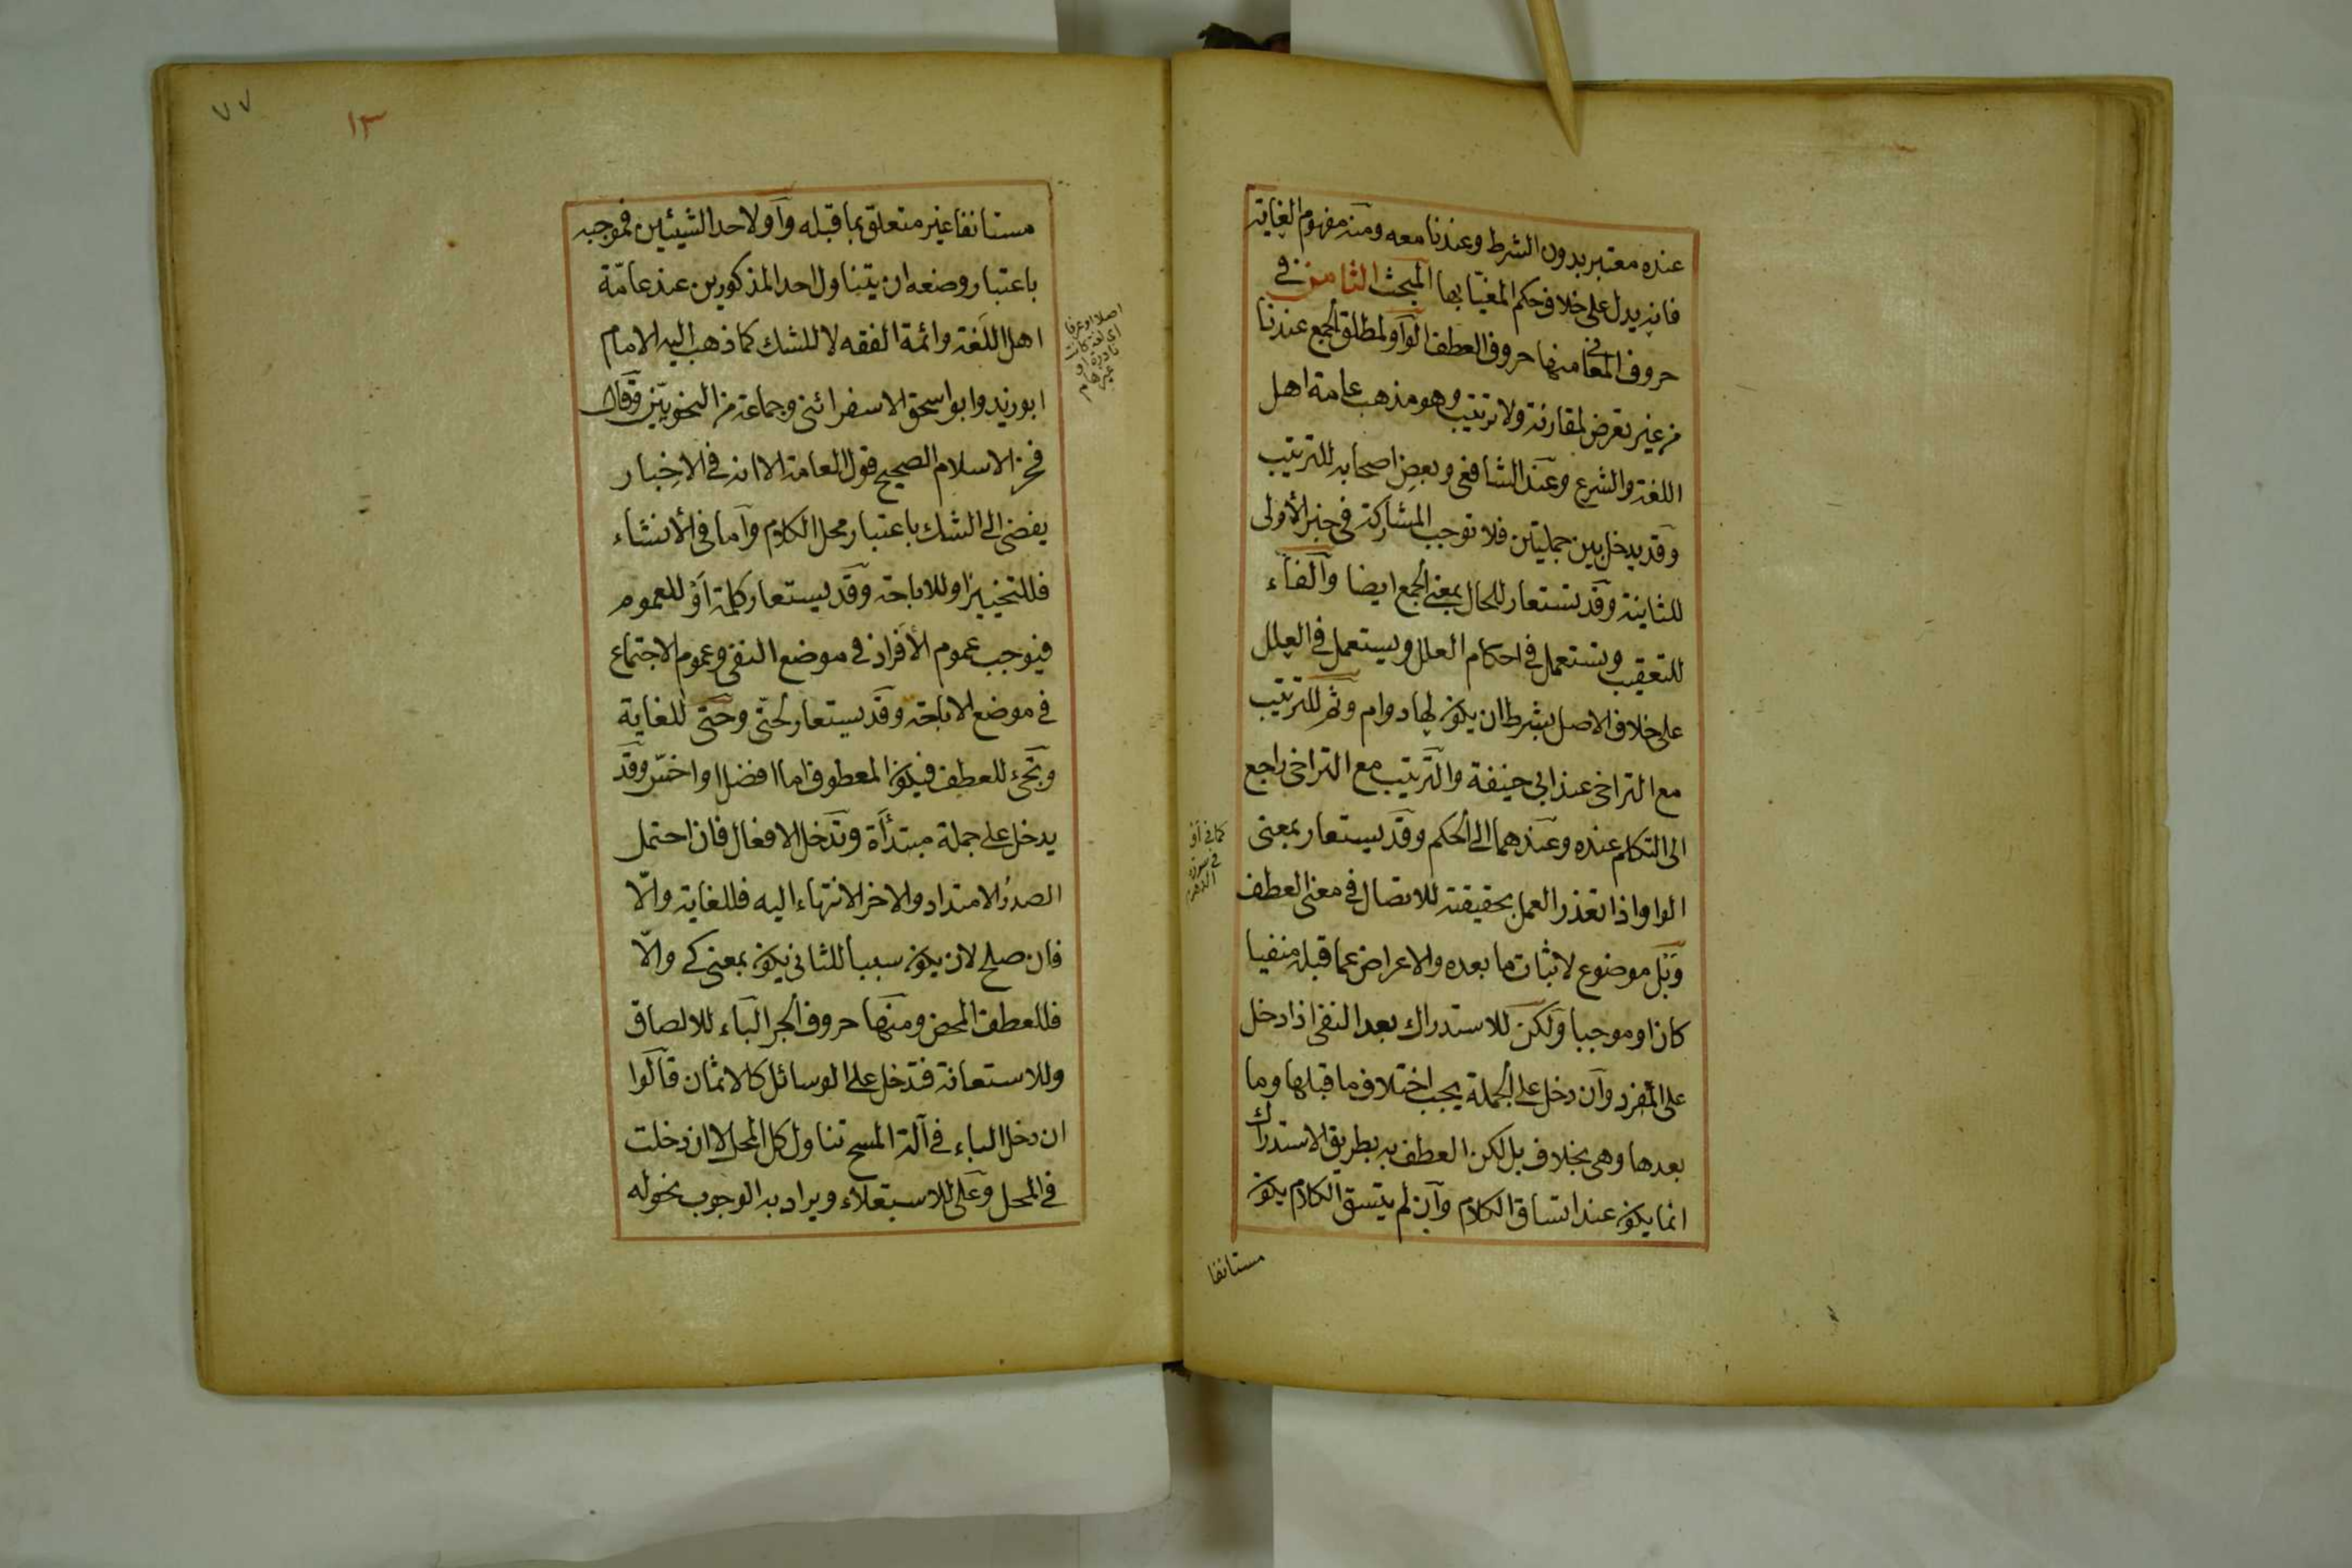 عنده معتبر بدون الشرط وعندنا معه ومنه مفهوم الغاية
فانه يدل على خلاف حكم المغيّا بها المبحث الثامن في
حروف المعاني منها حروف العطف الواو لمطلق الجمع عندنا
من غير تعرض لمقارنة ولا ترتيب وهو مذهب عامة اهل
اللغة والشرع وعند الشافعي وبعض اصحابه للترتيب
وقد يدخل بين جملتين فلا توجب المشاركة في خبر الأولى
للثانية وقد تستعار للحال بمعنى الجمع ايضا والفاء
للتعقيب وتستعمل في احكام العلل ويستعمل في العلل
على خلاف الاصل بشرط ان يكون لها دوام وثم للترتيب
مع التراخى عند ابى حنيفة والترتيب مع التراخى راجع
الى التكلم عنده وعندهما الى الحكم وقد يستعار بمعنى
الواو اذا تعذر العمل بحقيقته للاتصال في معنى العطف
وبل موضوع لاثبات ما بعده والاعراض عما قبله منفيا
كان او موجبا ولكن للاستدراك بعد النفى اذا دخل
على المفرد وان دخل على الجملة يجب اختلاف ما قبلها وما
بعدها وهى بخلاف بل لكن العطف به بطريق الاستدراك
انما يكون عند اتساق الكلام وان لم يتسق الكلام يكون
مستانفا
كما في او
في سورة
٧٧
١٣
مستانفا غير متعلق بما قبله وأو لاحد الشيئين فموجبه
باعتبار وضعه ان يتناول احد المذكورين عند عامّة
اهل اللغة وائمة الفقه لا للشك كما ذهب اليه الامام
ابو زيد وابو اسحق الاسفرائنى وجماعة من النحويّين وقال
فخر الاسلام الصحيح قول العامة الا انه في الاخبار
يفضى الى الشك باعتبار محل الكلام وأما في الأنشاء
فللتخيير او للاباحة وقد يستعار كلمة أو للعموم
فيوجب عموم الأفراد في موضع النفى وعموم الاجتماع
في موضع الاباحة وقد يستعار لحتّى وحتى للغاية
وتجئ للعطف فيكون المعطوف اما افضل او اخسّ وقد
يدخل على جملة مبتدأة وتدخل الافعال فان احتمل
الصدرُ الامتداد والاخر الانتهاء اليه فللغاية والّا
فان صلح لان يكون سببا للثانى يكون بمعنى كى والّا
فللعطف المحض ومنها حروف الجر الباء للالصاق
وللاستعانة فتدخل على الوسائل كالاثمان قالوا
ان دخل الباء في آلة المسح تناول كل المحل لا ان دخلت
في المحل وعلى للاستعلاء ويراد به الوجوب نحو له
اصلا او عرفا